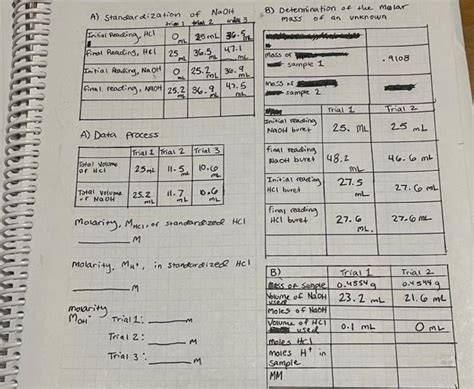 A) Standardization of NaOH
trial 1 trial 2 trial 3
Initial Reading, HCl 0 mL 25 mL 36.5 mL
final Reading, HCl 25 mL 36.5 mL 47.1 mL
Initial Reading, NaOH 0 mL 25.2 mL 36.9 mL
final reading, NaOH 25.2 mL 36.9 mL 47.5 mL
A) Data process
Trial 1 Trial 2 Trial 3
Total Volume of HCl 25 mL 11.5 mL 10.6 mL
Total Volume of NaOH 25.2 mL 11.7 mL 10.6 mL
Molarity, MHCl, of standardized HCl
M
Molarity, MH+, in standardized HCl
M
molarity
MOH-
Trial 1: M
Trial 2: M
Trial 3: M
B) Determination of the molar
mass of an unknown
mass of
sample 1 .9108
mass of
sample 2
Trial 1 Trial 2
Initial reading
NaOH buret 25. mL 25 mL
final reading
NaOH buret 48.2 mL 46.6 mL
Initial reading
HCl buret 27.5 mL 27.6 mL
final reading
HCl buret 27.6 mL. 27.6 mL
B) Trial 1 Trial 2
mass of sample 0.4554 g 0.4544 g
Volume of NaOH used 23.2 mL 21.6 mL
Moles of NaOH
Volume of HCl used 0.1 mL 0 mL
moles HCl
moles H+ in
sample
MM